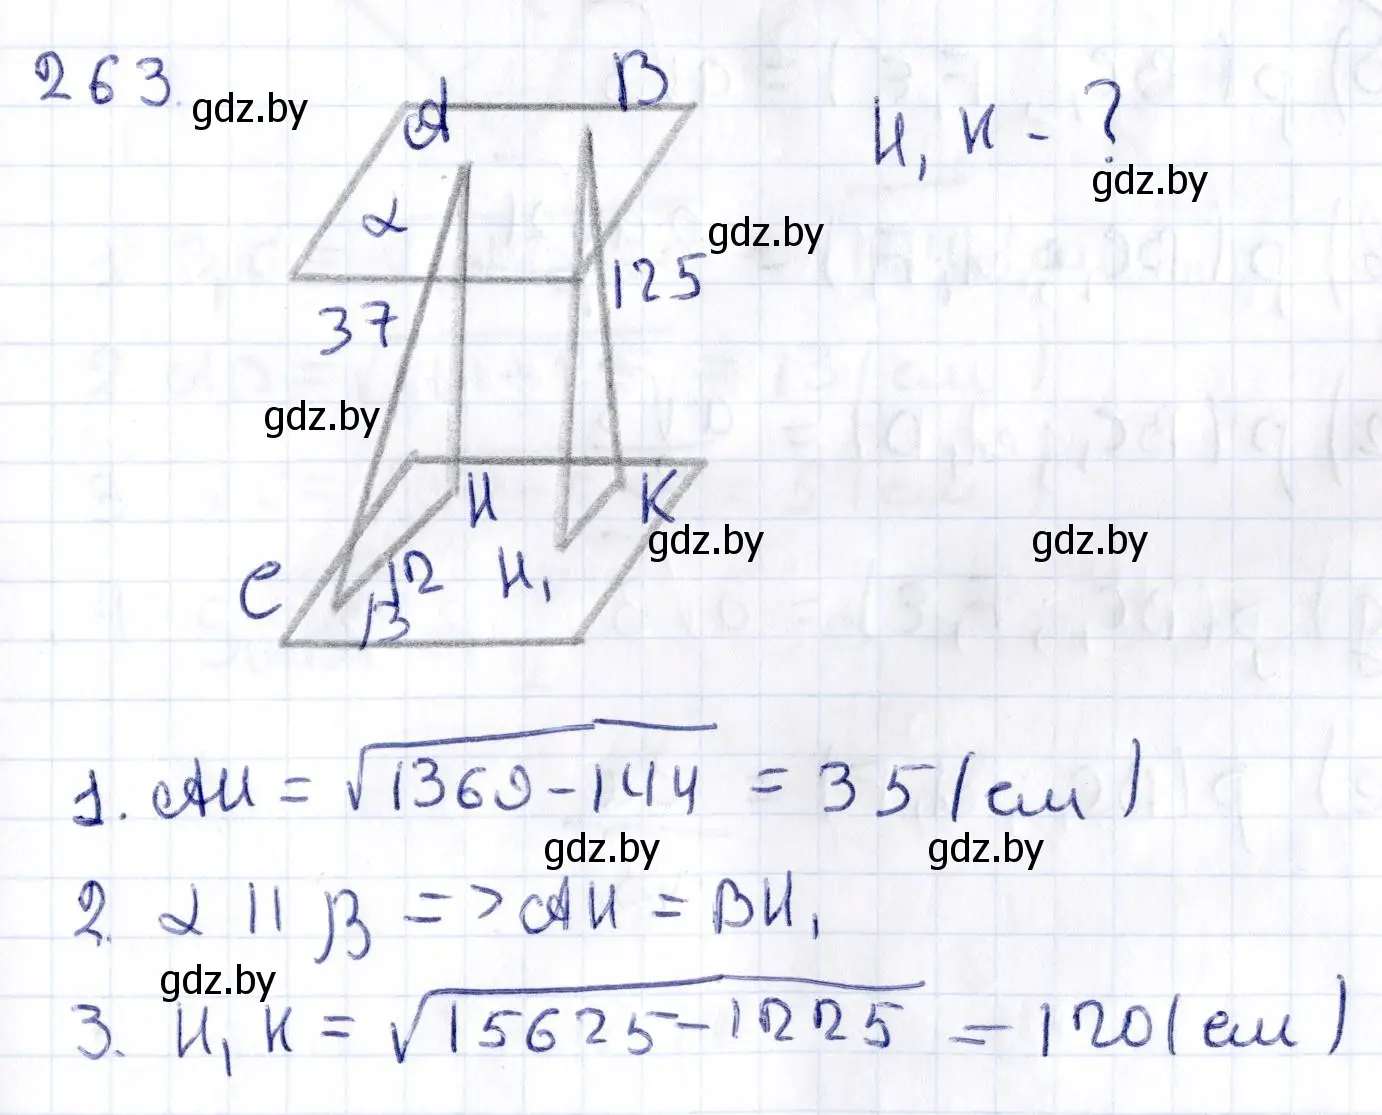 263.
gdz.by
A B
H₁K - ?
gdz.by
α
gdz.by
125
37
gdz.by
H K
gdz.by
gdz.by
C 12 H₁
β
1. AH = √1369-144 = 35 (см)
gdz.by
gdz.by
2. α || β => AH = BH₁
gdz.by
3. H₁K = √15625-1225 = 120 (см)